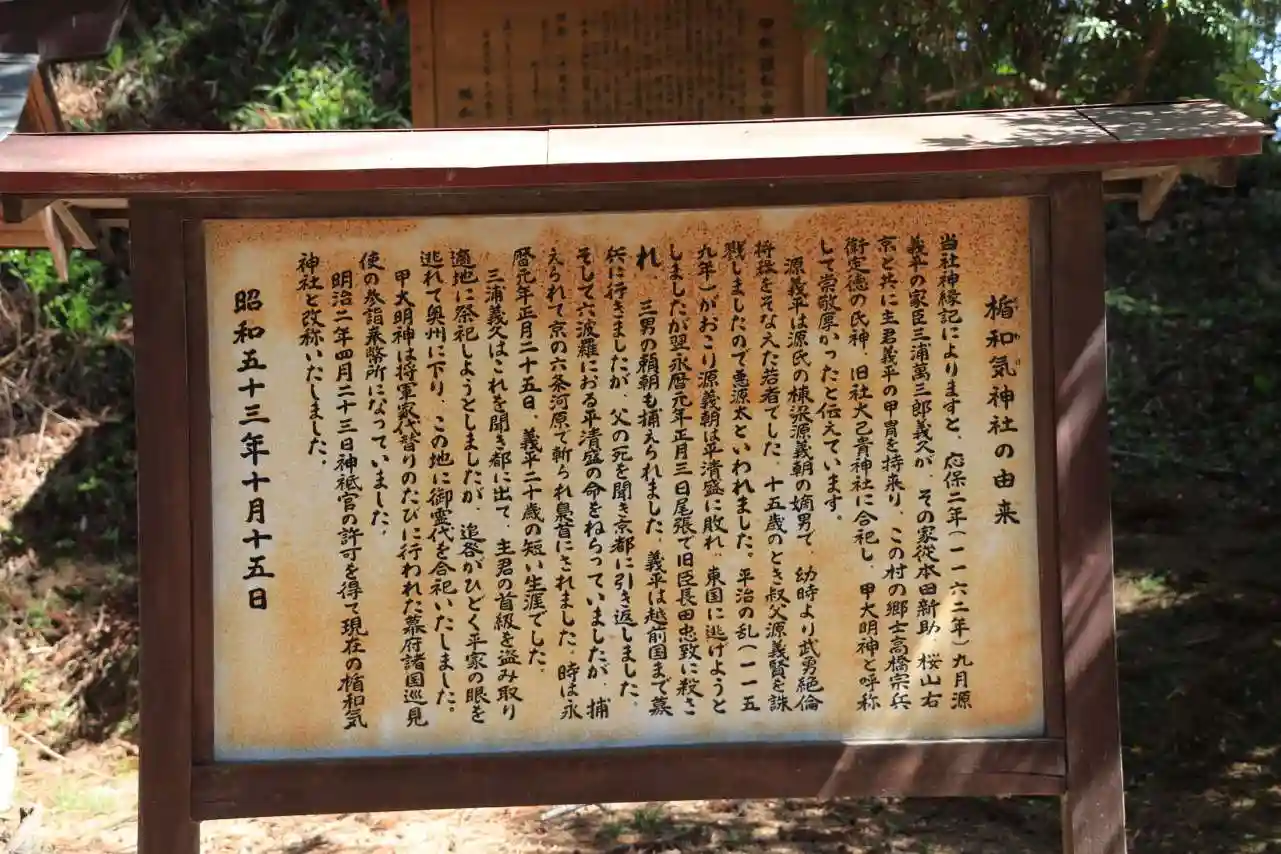 楯和気神社の由来
当社神縁記によりますと、応保二年(一一六二年)九月源
義平の家臣三浦萬三郎義久が、その家従本田新助 桜山右
京と共に主君義平の甲冑を持来り、この村の郷士高橋宗兵
衛定徳の氏神、旧社大己貴神社に合祀し、甲大明神と呼称
して崇敬厚かったと伝えています。
源義平は源氏の棟梁源義朝の嫡男で、幼時より武勇絶倫
将器をそなえた若者でした。十五歳のとき叔父源義賢を誅
戮しましたので悪源太といわれました。平治の乱(一一五
九年)がおこり源義朝は平清盛に敗れ、東国に逃げようと
しましたが翌永暦元年正月三日尾張で旧臣長田忠致に殺さ
れ、三男の頼朝も捕えられました。義平は越前国まで募
兵に行きましたが、父の死を聞き京都に引き返しました。
そして六波羅における平清盛の命をねらっていましたが、捕
えられて京の六条河原で斬られ梟首にされました。時は永
暦元年正月二十五日、義平二十歳の短い生涯でした。
三浦義久はこれを聞き都に出て、主君の首級を盗み取り
適地に祭祀しようとしましたが、追咎がひどく平家の眼を
逃れて奥州に下り、この地に御霊代を合祀いたしました。
甲大明神は将軍家代替りのたびに行われた幕府諸国巡見
使の参詣奉幣所になっていました。
明治二年四月二十三日神祇官の許可を得て現在の楯和気
神社と改称いたしました。
昭和五十三年十月十五日